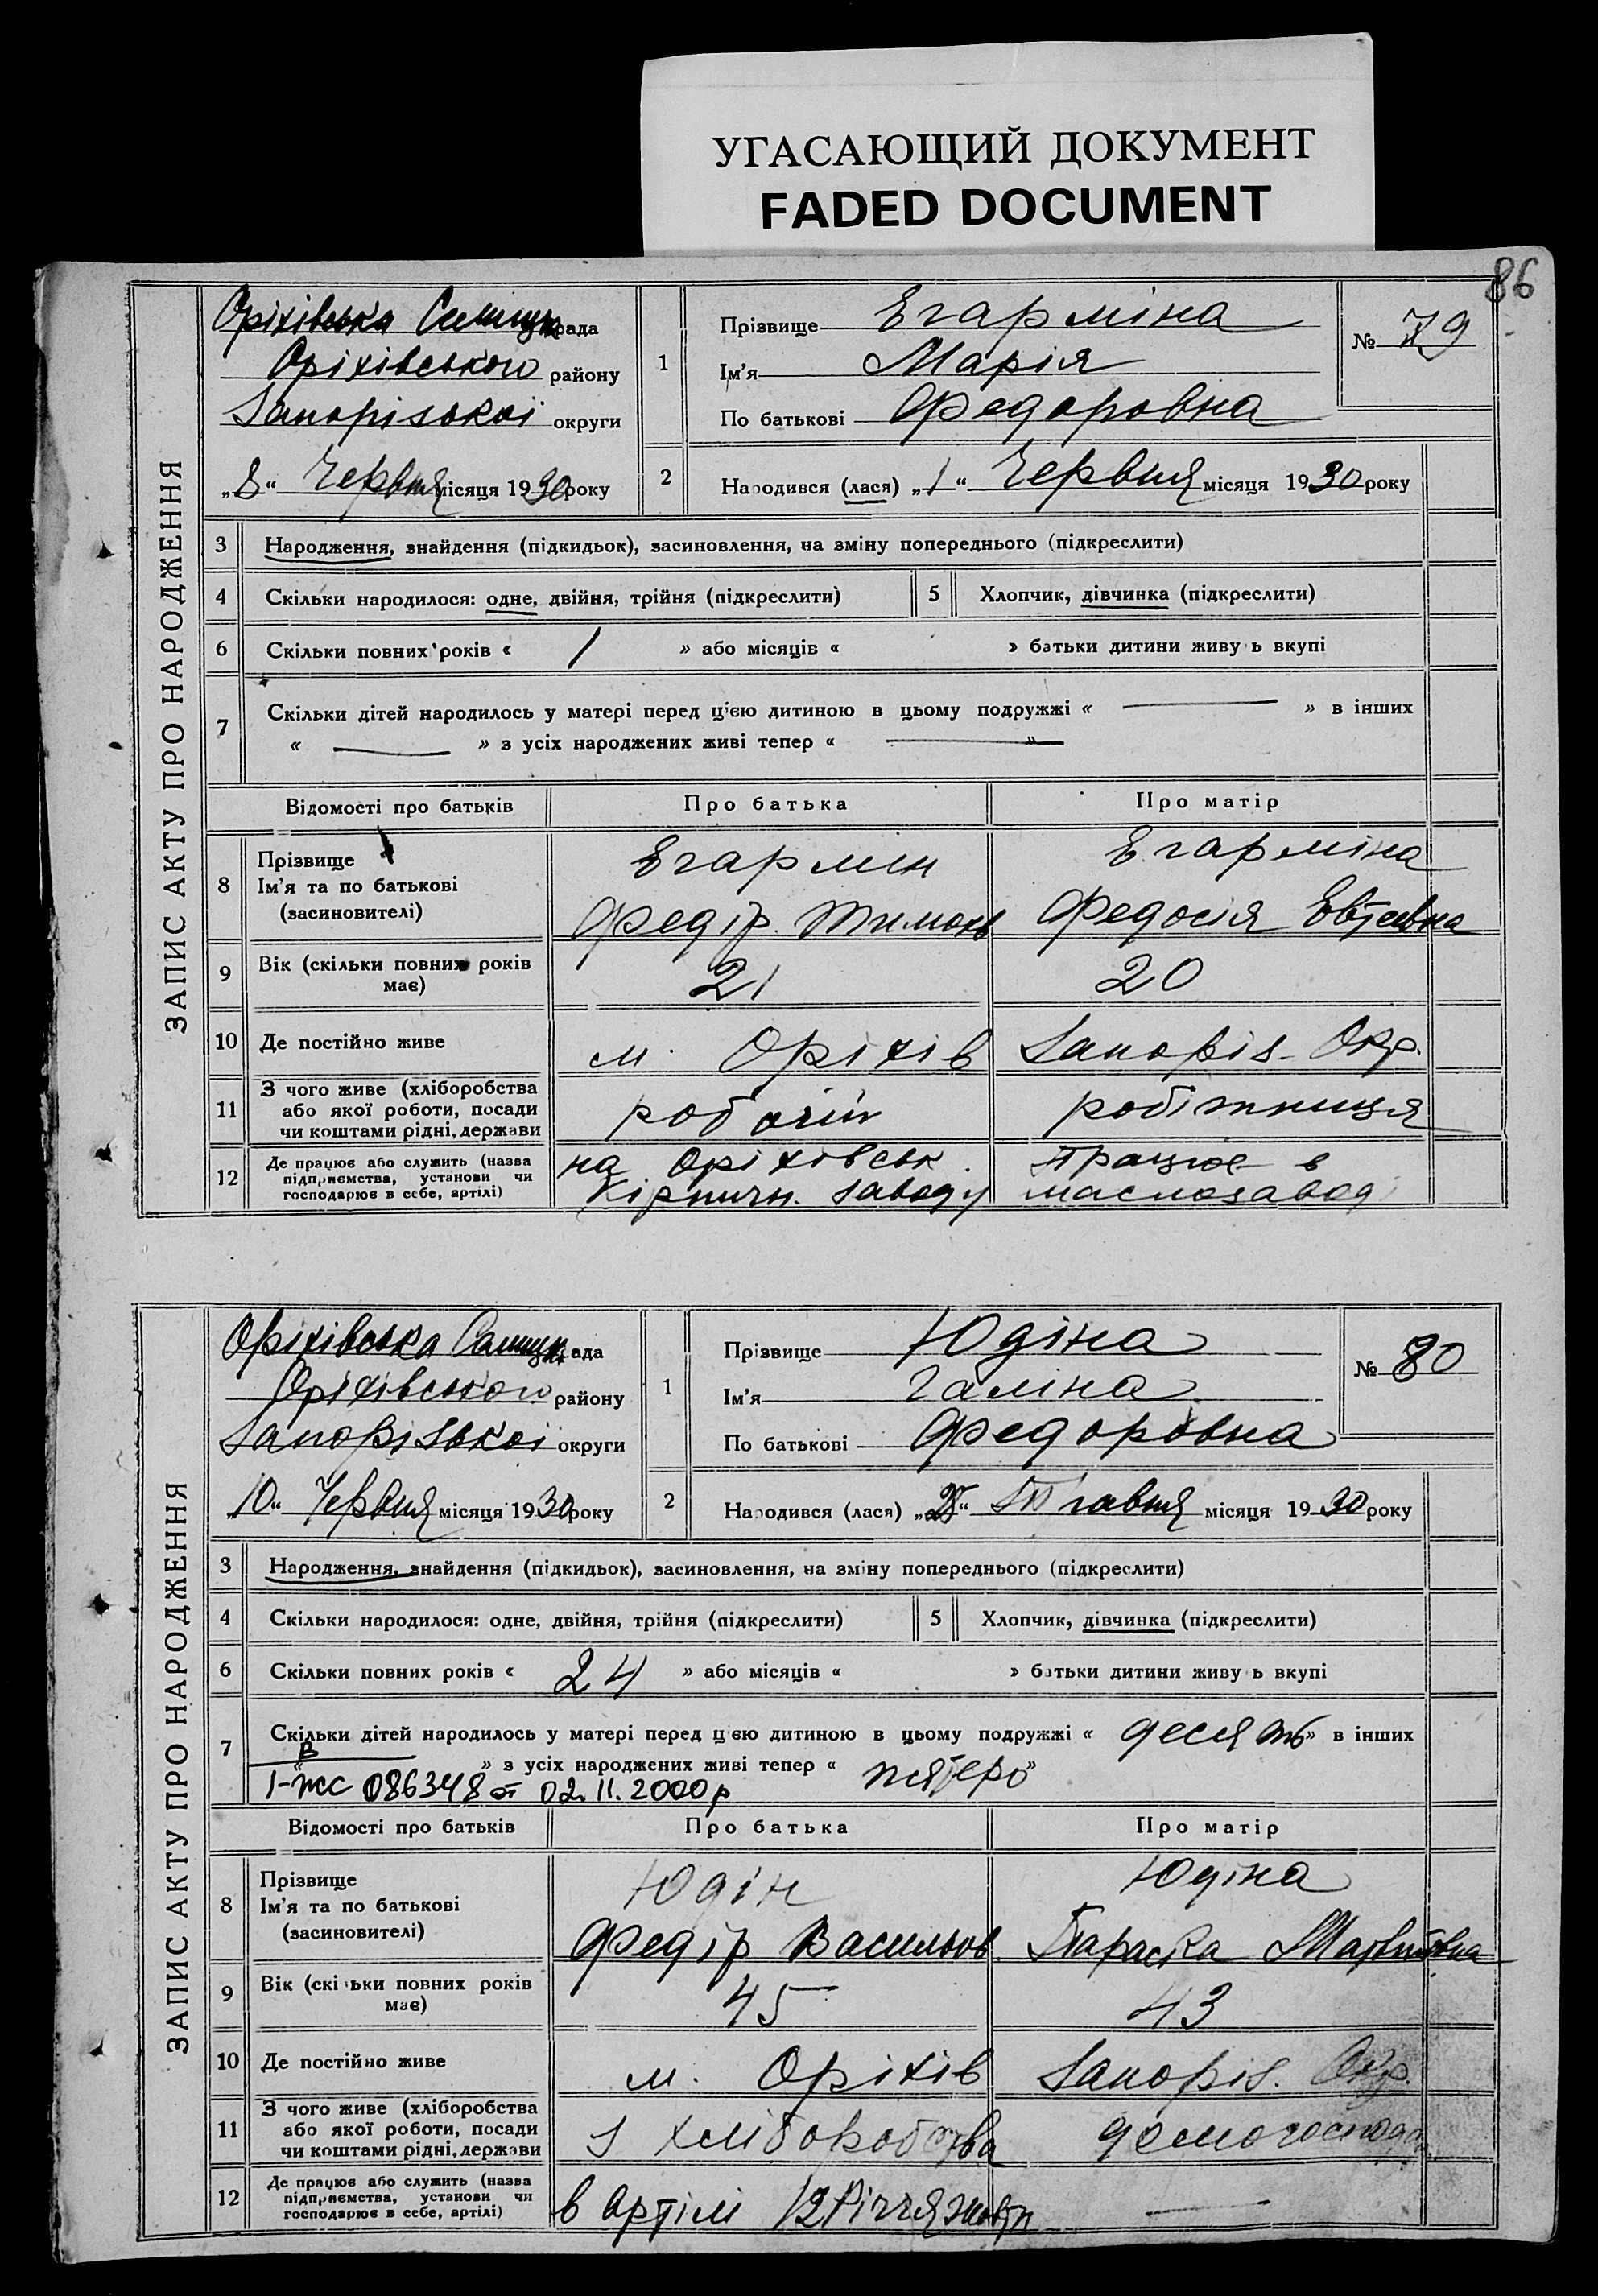 УГАСАЮЩИЙ ДОКУМЕНТ
FADED DOCUMENT
86
ЗАПИС АКТУ ПРО НАРОДЖЕННЯ
Оріхівська Селищн рада
Оріхівського району
Запорізькоі округи
„8“ Червня місяця 1930 року
1
Прізвище Егарміна
Ім’я Марія
По батькові Федоровна
№ 79
2
Народився (лася) „1“ Червня місяця 1930 року
3 Народження, знайдення (підкидьок), засиновлення, на зміну попереднього (підкреслити)
4 Скільки народилося: одне, двійня, трійня (підкреслити) 5 Хлопчик, дівчинка (підкреслити)
6 Скільки повних років « 1 » або місяців « » батьки дитини живуть вкупі
7 Скільки дітей народилось у матері перед цією дитиною в цьому подружжі « — » в інших
« — » з усіх народжених живі тепер « — »
Відомості про батьків Про батька Про матір
8 Прізвище Егармін Егарміна
Ім’я та по батькові
(засновителі) Федір Тимохв Федосія Евтеевна
9 Вік (скільки повних років має) 21 20
10 Де постійно живе м. Оріхів Запоріз. Окр.
11 З чого живе (хліборобства
або якої роботи, посади
чи коштами рідні, держави робочій робітниця
12 Де працює або служить (назва
підприємства, установи чи
господарює в себе, артілі) на Оріхівськ. працює в
Кірпичн. заводу маслозавод
ЗАПИС АКТУ ПРО НАРОДЖЕННЯ
Оріхівська Селищн рада
Оріхівського району
Запорізькоі округи
„10“ Червня місяця 1930 року
1
Прізвище Юдіна
Ім’я Галіна
По батькові Федоровна
№ 80
2
Народився (лася) Травня місяця 1930 року
3 Народження, знайдення (підкидьок), засиновлення, на зміну попереднього (підкреслити)
4 Скільки народилося: одне, двійня, трійня (підкреслити) 5 Хлопчик, дівчинка (підкреслити)
6 Скільки повних років « 24 » або місяців « » батьки дитини живуть вкупі
7 Скільки дітей народилось у матері перед цією дитиною в цьому подружжі « десять » в інших
« » з усіх народжених живі тепер « пятеро »
І-жс 086348 от 02.11.2000р
Відомості про батьків Про батька Про матір
8 Прізвище Юдін Юдіна
Ім’я та по батькові
(засиновителі) Федір Васильов Параска Матвіївна
9 Вік (скільки повних років має) 45 43
10 Де постійно живе м. Оріхів Запоріз. Окр.
11 З чого живе (хліборобства
або якої роботи, посади
чи коштами рідні, держави з хліборобства домогоспода
12 Де працює або служить (назва
підприємства, установи чи
господарює в себе, артілі) в артілі 12 Річчя жовтн —